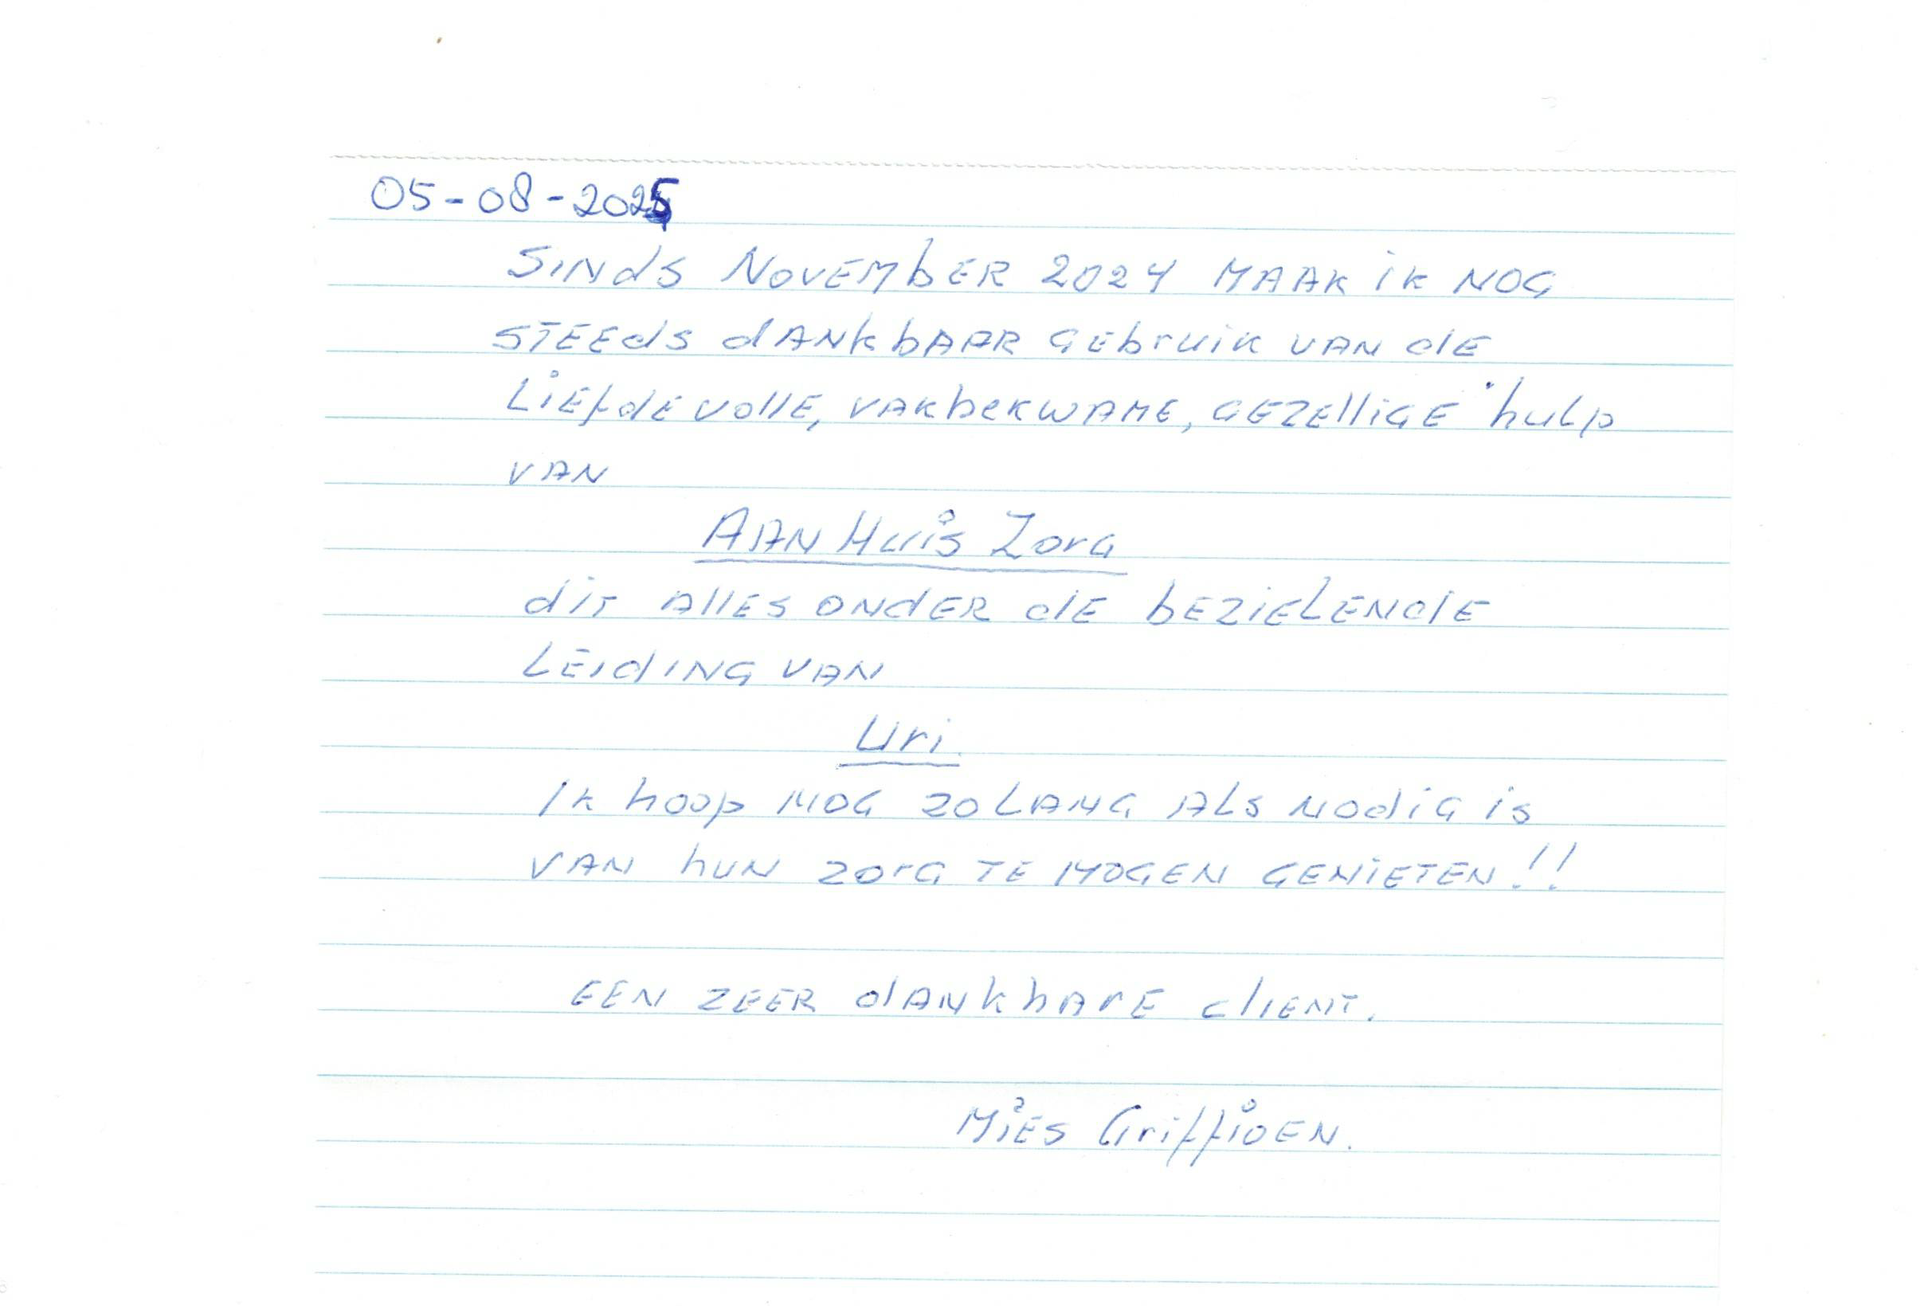 05-08-2025
Sinds November 2024 maak ik nog
steeds dankbaar gebruik van de
Liefdevolle, vakbekwame, gezellige hulp
van
Aan Huis Zorg
dit alles onder de bezielende
Leiding van
Uri.
Ik hoop nog zolang als nodig is
van hun zorg te mogen genieten!!
Een zeer dankbare client.
Mies Griffioen.